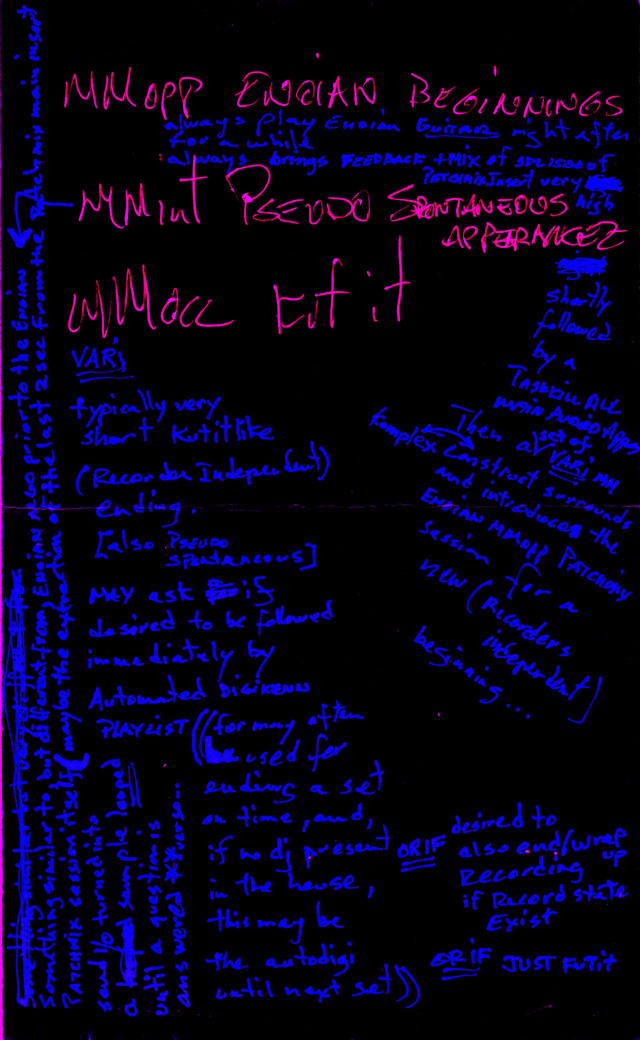 MMOPP ENDIAN BEGINNINGS
always play ENDIAN GUITAR right after
for a while
always brings FEEDBACK + MIX of of
PATCHMIX INSERT very
high
MMint PSEUDO SPONTANEOUS
APPERANCEZ
MMocc Kutit
shortly
followed
by a
TASKKILL ALL
MAIN AUDIO APPS
Then a set of VARi MM
Komplex Construct surrounds
and introduces the
ENDIAN MMOPP PATCHDMY
session for a
new (Recorders
independent
beginning...)
VARi
typically very
short Kutitlike
(Recorder Independent)
ending.
[also PSEUDO
SPONTANEOUS]
MAY ask if
desired to be followed
immediately by
Automated DIGIKENN
PLAYLIST ((for may often
be used for
ending a set
on time, and,
if no dj present
in the house,
this may be
the autodigi
until next set))
OR IF desired to
also end/wrap up
Recording
if Record state
Exist
OR IF JUST FUTit
Something similar to but different from, ENDIAN ALGO prior to the ENDIAN
PATCHMIX session itself (maybe the extraction of the last 2 sec from the Patchmix main insert
send i/o turned into
a sample looped
until a question is
answered